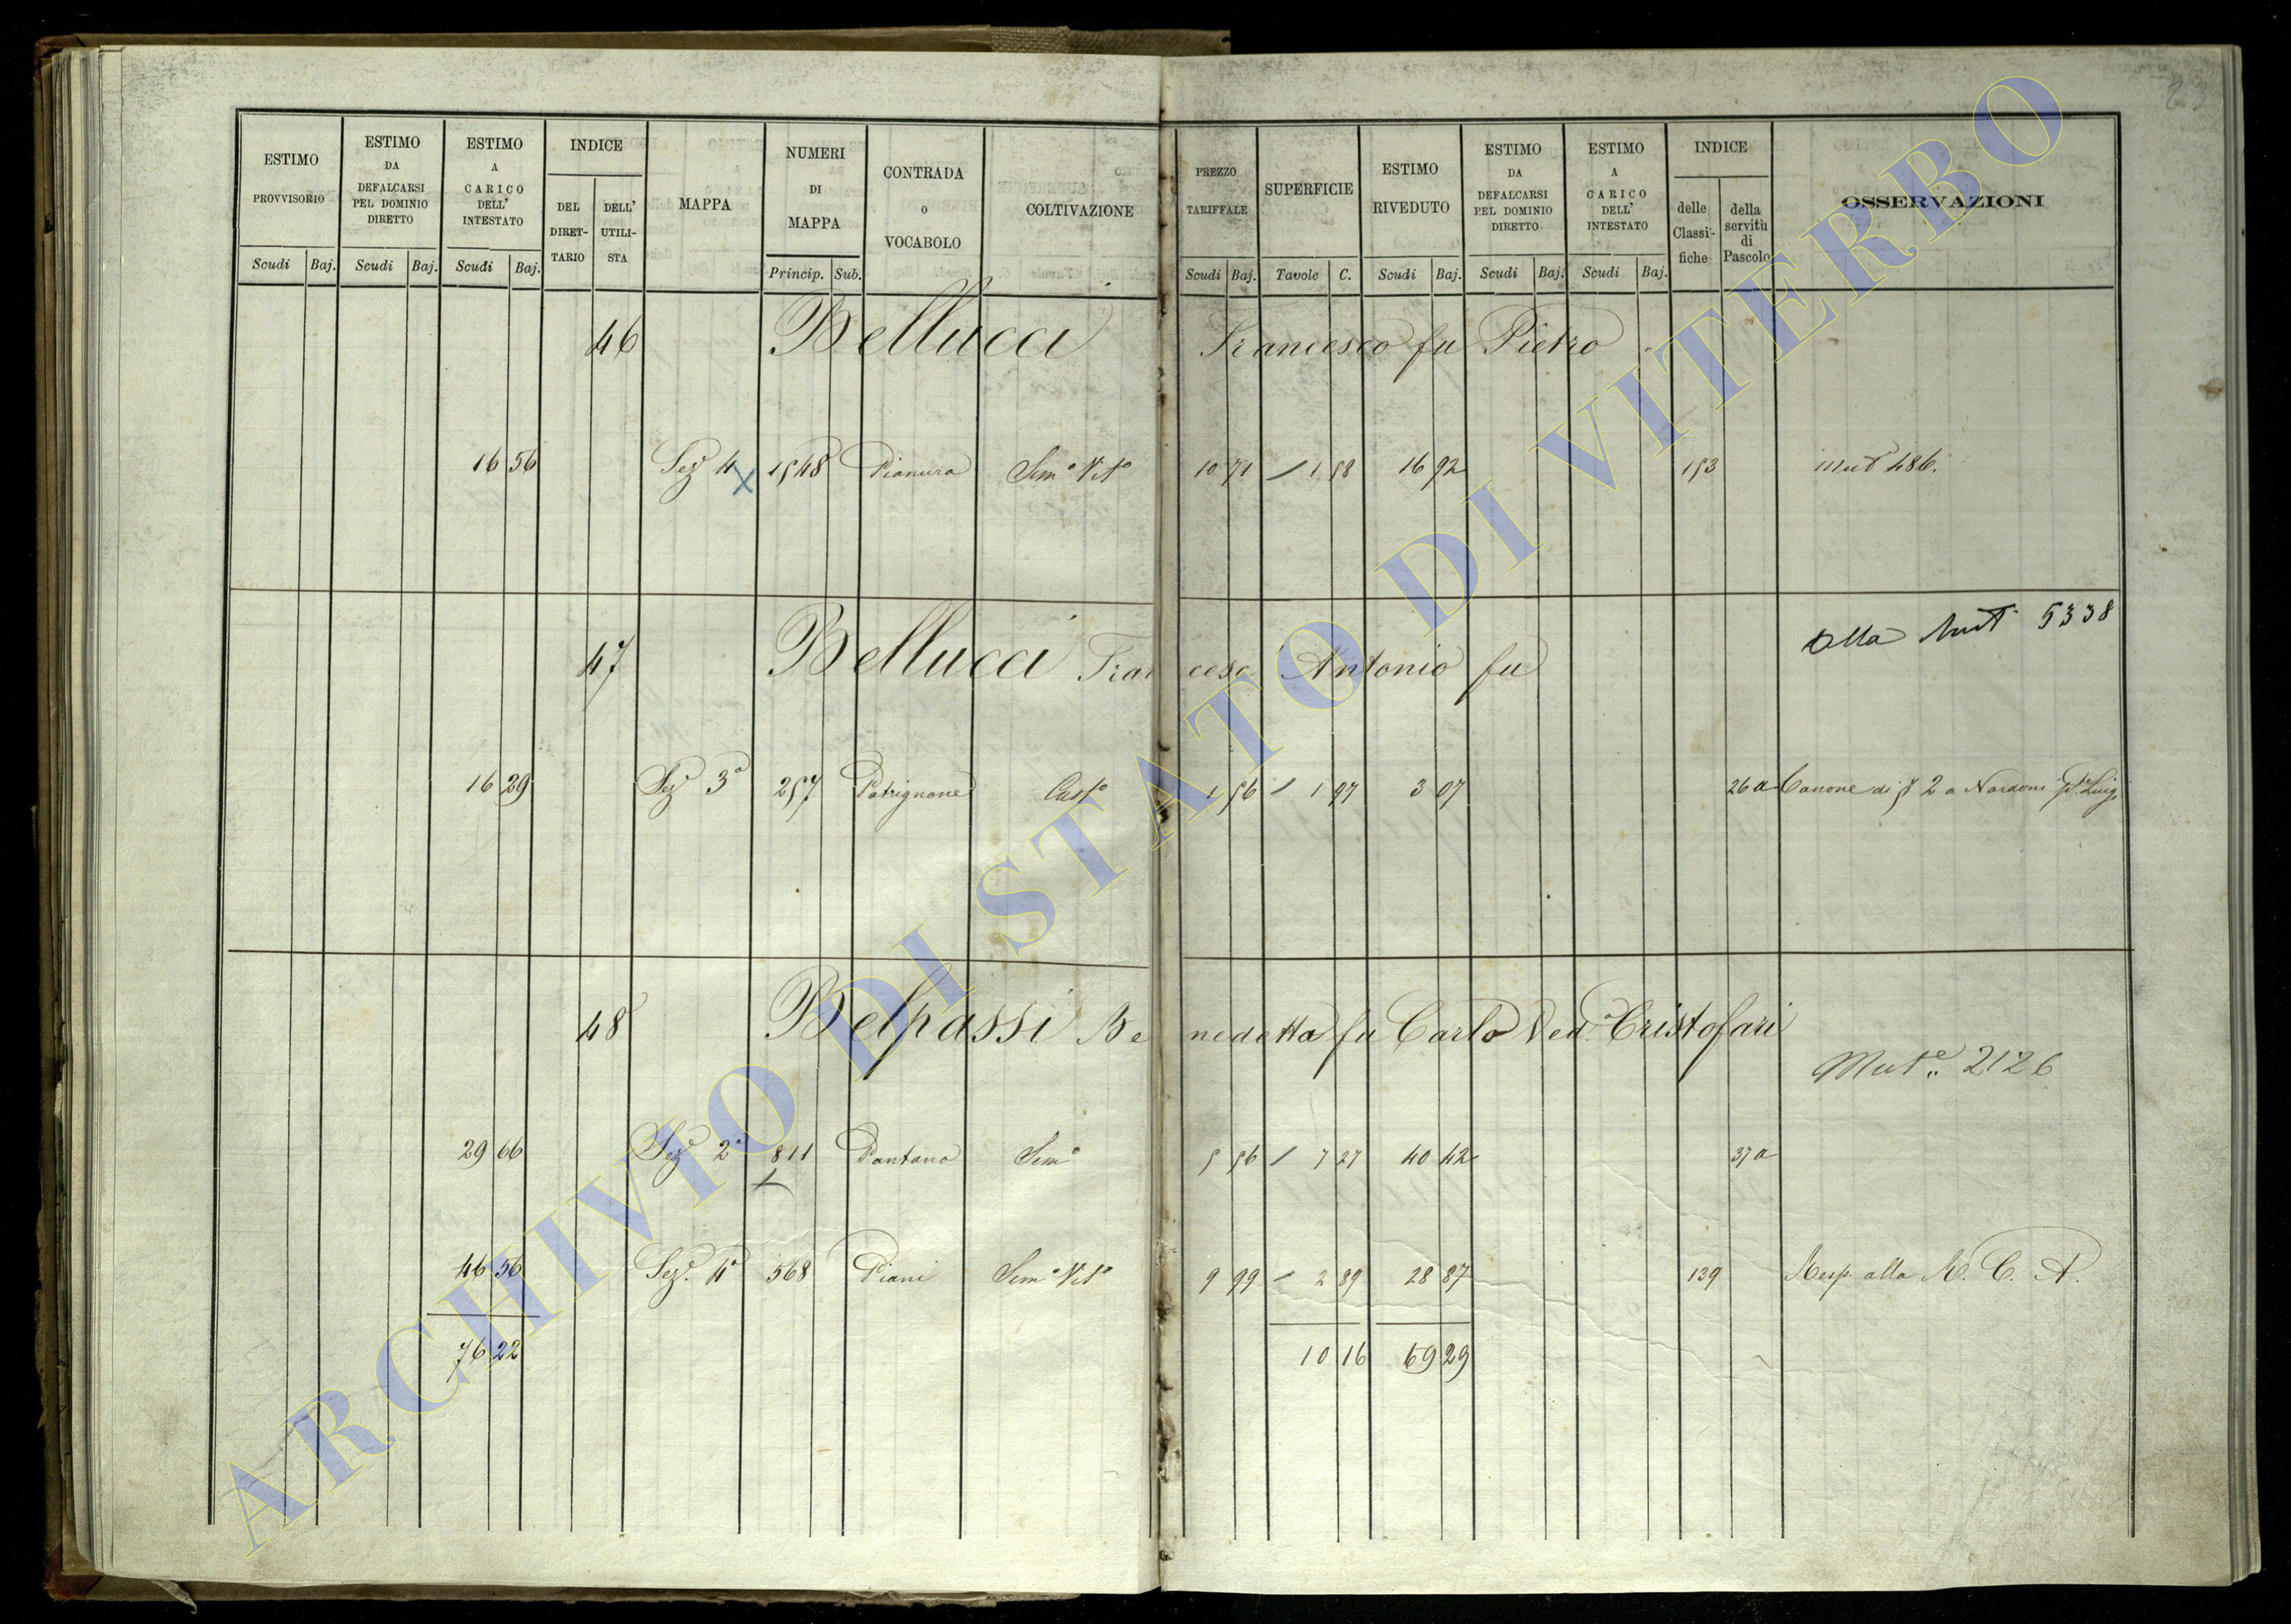 ESTIMO PROVVISORIO Scudi Baj.
ESTIMO DA DEFALCARSI PEL DOMINIO DIRETTO Scudi Baj.
ESTIMO A CARICO DELL' INTESTATO Scudi Baj.
INDICE DEL DIRET- TARIO DELL' UTILI- STA
MAPPA
NUMERI DI MAPPA Princip. Sub.
CONTRADA o VOCABOLO
COLTIVAZIONE
PREZZO TARIFFALE Scudi Baj.
SUPERFICIE Tavole C.
ESTIMO RIVEDUTO Scudi Baj.
ESTIMO DA DEFALCARSI PEL DOMINIO DIRETTO Scudi Baj.
ESTIMO A CARICO DELL' INTESTATO Scudi Baj.
INDICE delle Classi- fiche della servitù di Pascolo
OSSERVAZIONI
46 Bellucci Francesco fu Pietro
16 56 Sez. 4 X 1548 Pianura Sem.o Vit.o 10 71 / 1 58 16 92 153 mut 486.
alla Mut 5338
47 Bellucci Francesc' Antonio fu
16 29 Sez. 3a 257 Patrignone Cast.o 1 56 / 1 97 3 07 26 a Canone di 2 a Nardoni Luigi
48 Belpassi Benedetta fu Carlo Ved.a Cristofari
Mut.e 2126
29 66 Sez. 2a 811 Pantano Sem.o 5 56 / 7 27 40 42 37 a
46 56 Sez. 4a 568 Piani Sem.o Vit.o 9 99 / 2 89 28 87 139 Resp. alla R. C. A.
76 22 10 16 69 29
ARCHIVIO DI STATO DI VITERBO